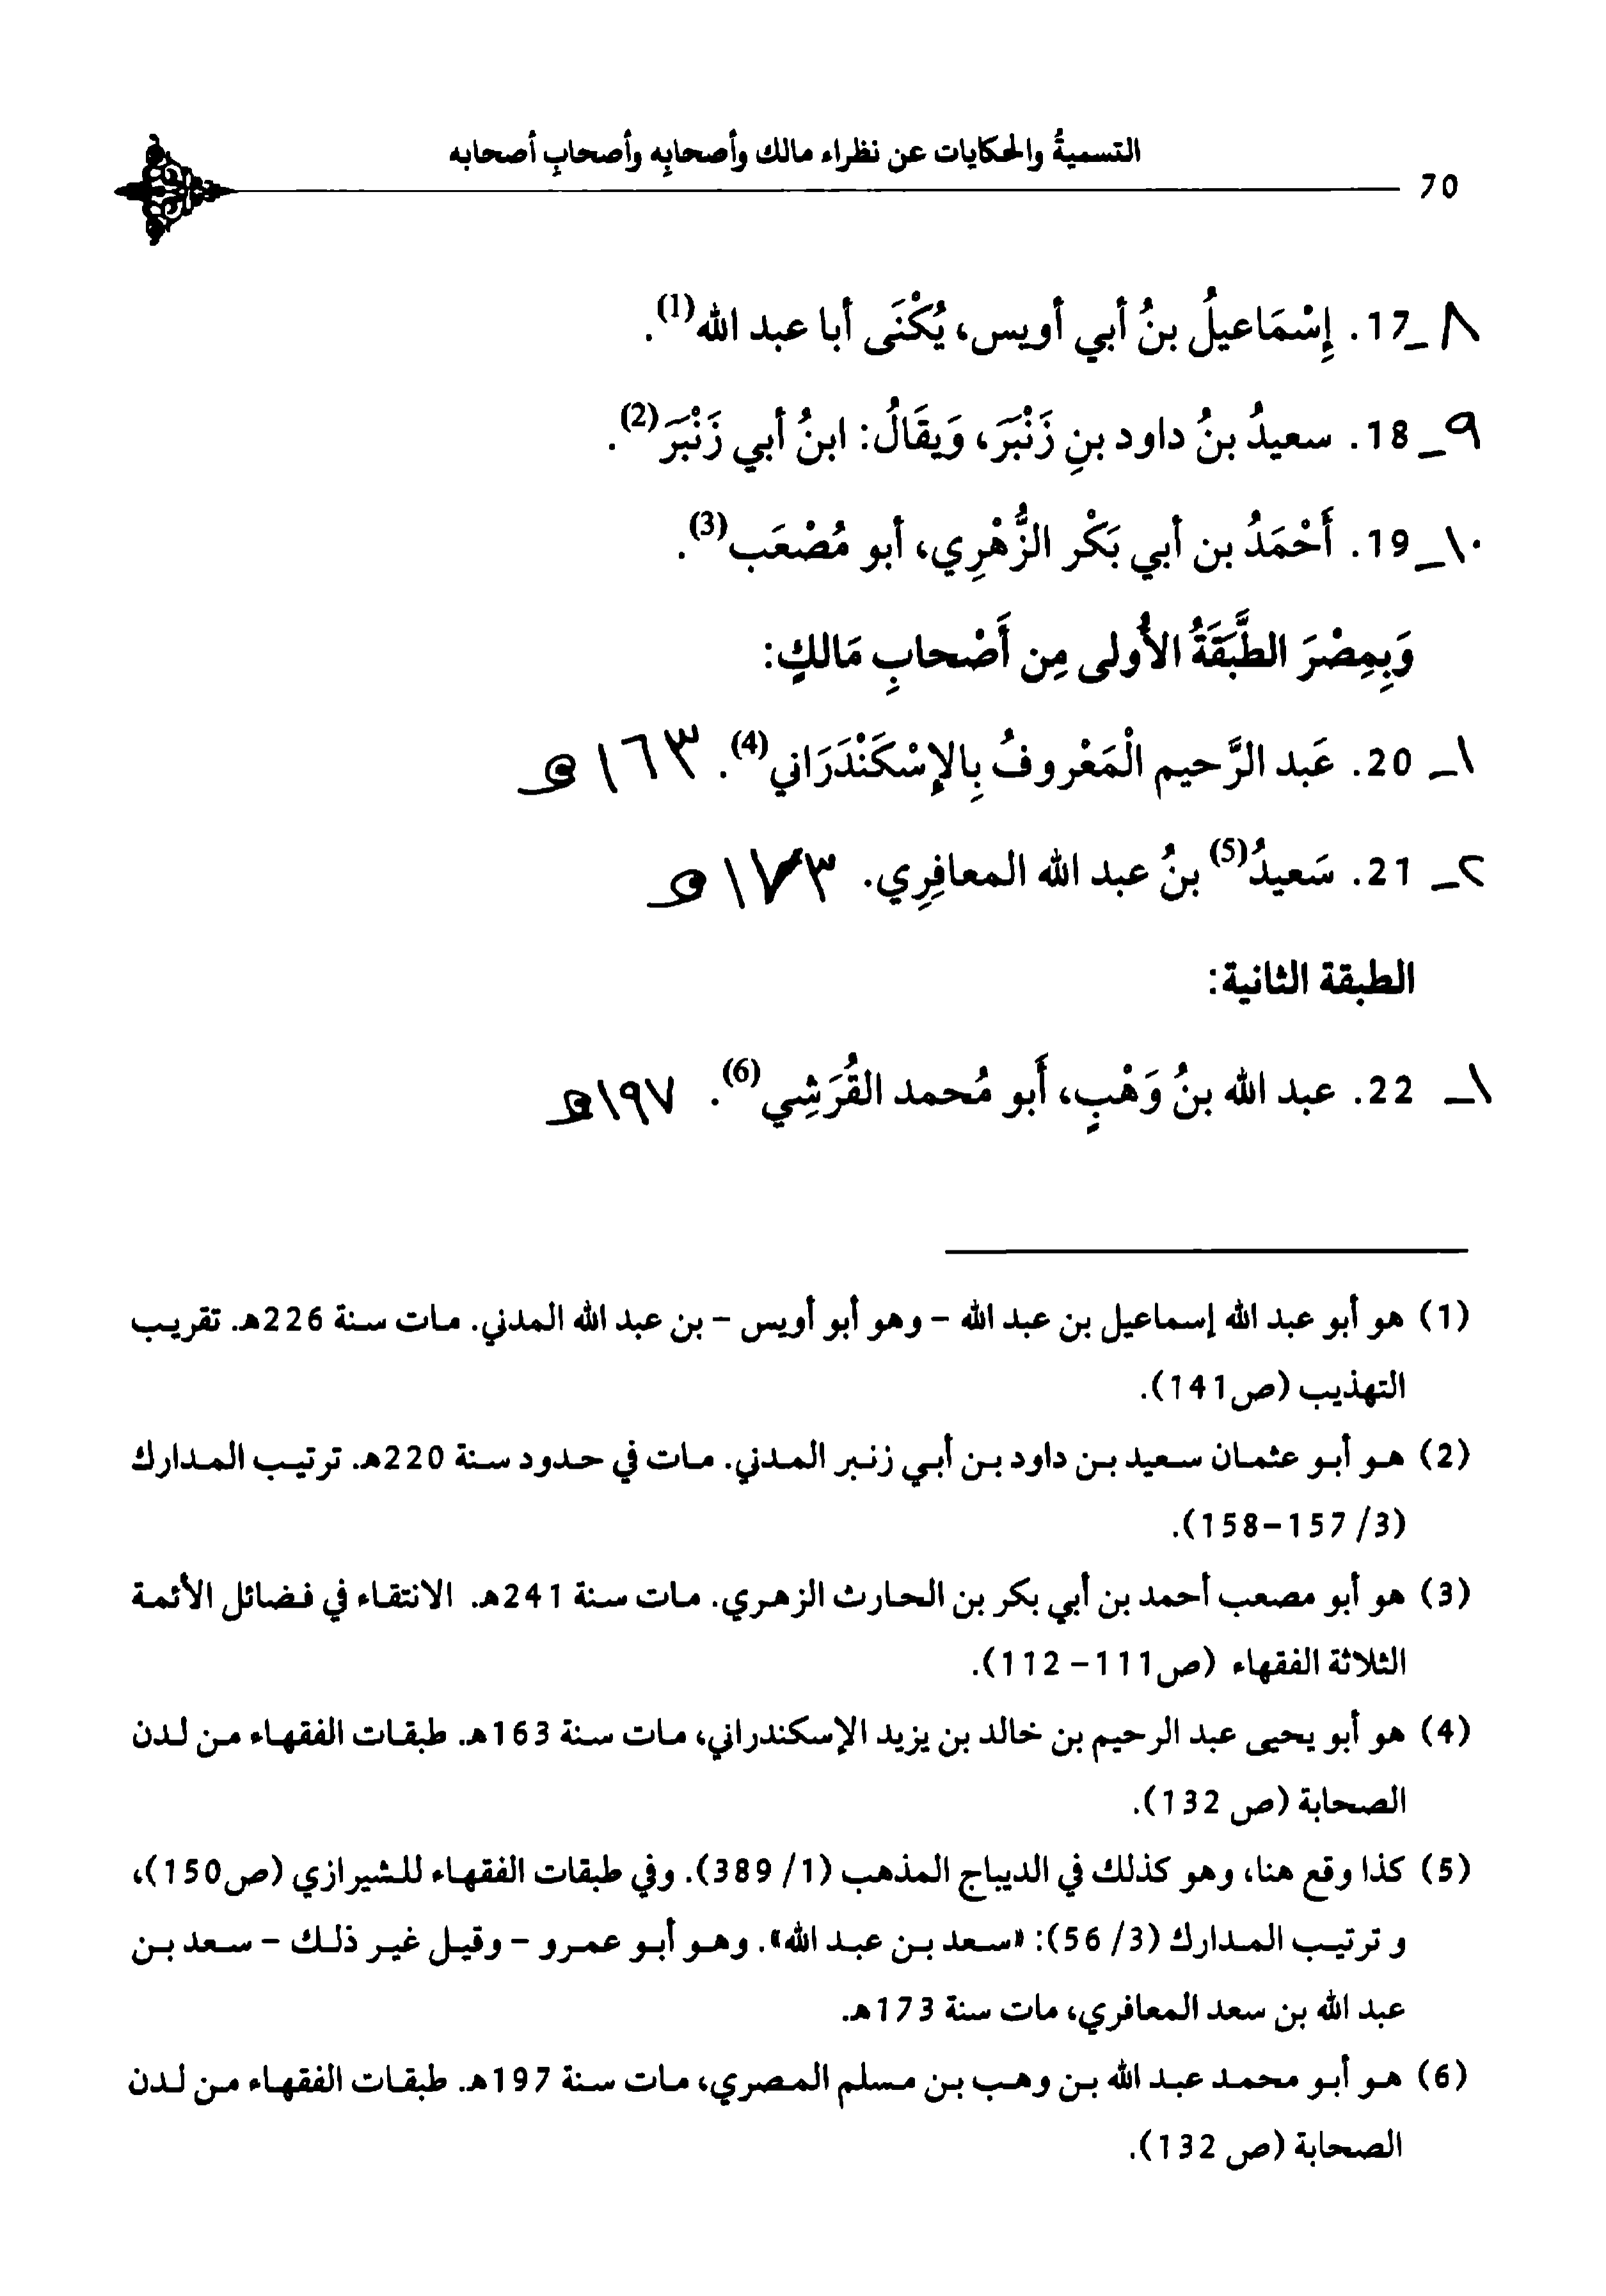 التسميةُ والحكايات عن نظراء مالك وأصحابِه وأصحابِ أصحابه
70
٨ـ 17. إِسْمَاعيلُ بنُ أبي أويس، يُكْنَى أبا عبد الله(1).
٩ـ 18. سعيدُ بنُ داود بنِ زَنْبَرَ، وَيقَالُ: ابنُ أبي زَنْبَرَ(2).
١٠ـ 19. أَحْمَدُ بن أبي بَكْر الزُّهْرِي، أبو مُصْعَب(3).
وَبِمِصْرَ الطَّبَقَةُ الأُولى مِن أَصْحابِ مَالكٍ:
١ـ 20. عَبد الرَّحيم الْمَعْروفُ بِالإسْكَنْدَرَاني(4). ١٦٣هـ
٢ـ 21. سَعيدُ(5) بنُ عبد الله المعافِرِي. ١٧٣هـ
الطبقة الثانية:
١ـ 22. عبد الله بنُ وَهْبٍ، أَبو مُحمد القُرَشِي(6). ١٩٧هـ
(1) هو أبو عبد الله إسماعيل بن عبد الله – وهو أبو أويس – بن عبد الله المدني. مات سنة 226هـ. تقريب
التهذيب (ص141).
(2) هو أبو عثمان سعيد بن داود بن أبي زنبر المدني. مات في حدود سنة 220هـ. ترتيب المدارك
(3/ 157–158).
(3) هو أبو مصعب أحمد بن أبي بكر بن الحارث الزهري. مات سنة 241هـ. الانتقاء في فضائل الأئمة
الثلاثة الفقهاء (ص111– 112).
(4) هو أبو يحيى عبد الرحيم بن خالد بن يزيد الإسكندراني، مات سنة 163هـ. طبقات الفقهاء من لدن
الصحابة (ص 132).
(5) كذا وقع هنا، وهو كذلك في الديباج المذهب (1/ 389). وفي طبقات الفقهاء للشيرازي (ص150)،
و ترتيب المدارك (3/ 56): «سعد بن عبد الله». وهو أبو عمرو – وقيل غير ذلك – سعد بن
عبد الله بن سعد المعافري، مات سنة 173هـ.
(6) هو أبو محمد عبد الله بن وهب بن مسلم المصري، مات سنة 197هـ. طبقات الفقهاء من لدن
الصحابة (ص 132).